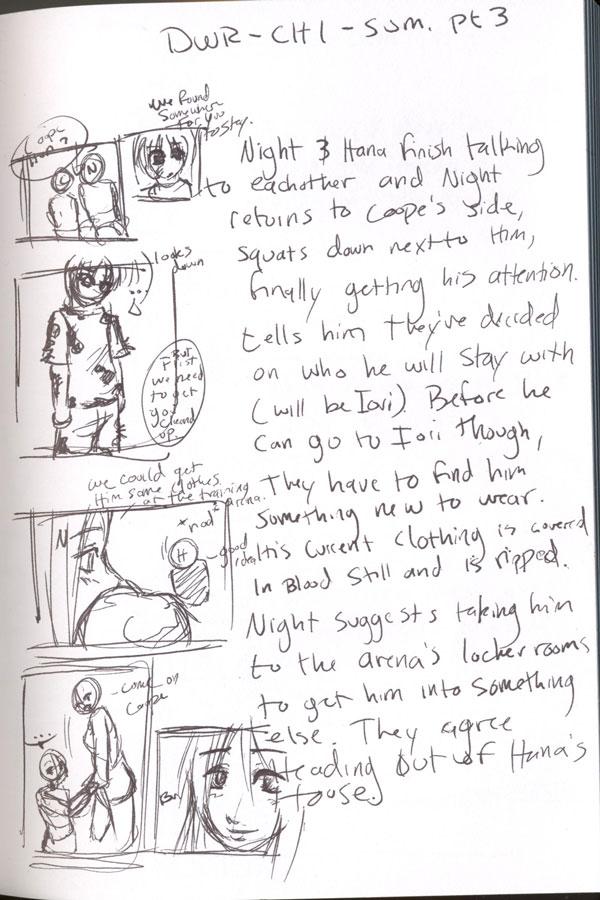 DWR-CH1-sum. pt3
we found
somewhere
for you
to stay.
N
Night & Hana finish talking
to eachother and Night
returns to Coope's side,
squats down next to Him,
finally getting his attention.
tells him they've decided
on who he will stay with
(will be Iori). Before he
can go to Iori though,
They have to find him
something new to wear.
His current clothing is covered
In Blood still and is ripped.
Night suggests taking him
to the arena's locker rooms
to get him into something
else. They agree
Heading out of Hana's
House.
looks
down
...
But
First
we need
to get
you
cleaned
up
we could get
Him some clothes
at the training
arena.
N
*nod*
H
good
idea
come on
Coope
...